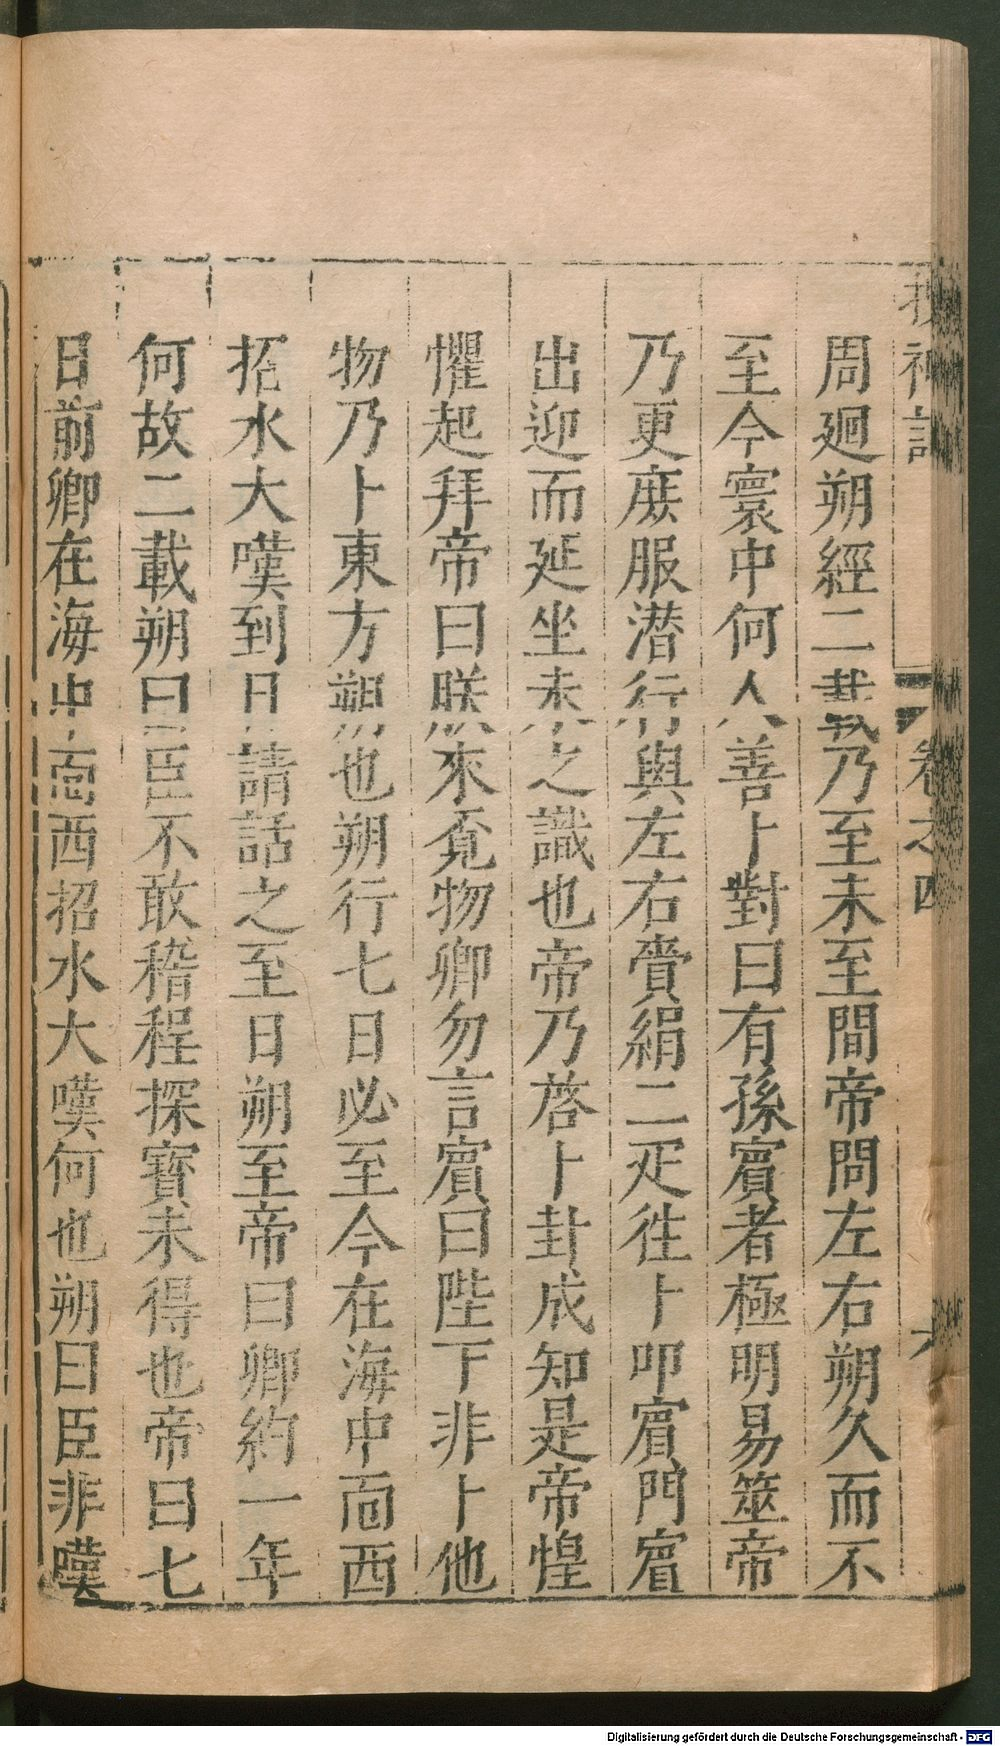 搜神記 卷之四 六
周廻朔經二載乃至未至間帝問左右朔久而不
至今寰中何人善卜對曰有孫賓者極明易筮帝
乃更庻服潜行與左右賫絹二疋徃卜叩賓門賓
出迎而延坐未之識也帝乃啓卜卦成知是帝惶
懼起拜帝曰朕來覔物卿勿言賓曰陛下非卜他
物乃卜東方朔也朔行七日必至今在海中靣西
招水大嘆到日請話之至日朔至帝曰卿約一年
何故二載朔曰臣不敢稽程探寳未得也帝曰七
日前卿在海中靣西招水大嘆何也朔曰臣非嘆
Digitalisierung gefördert durch die Deutsche Forschungsgemeinschaft - DFG